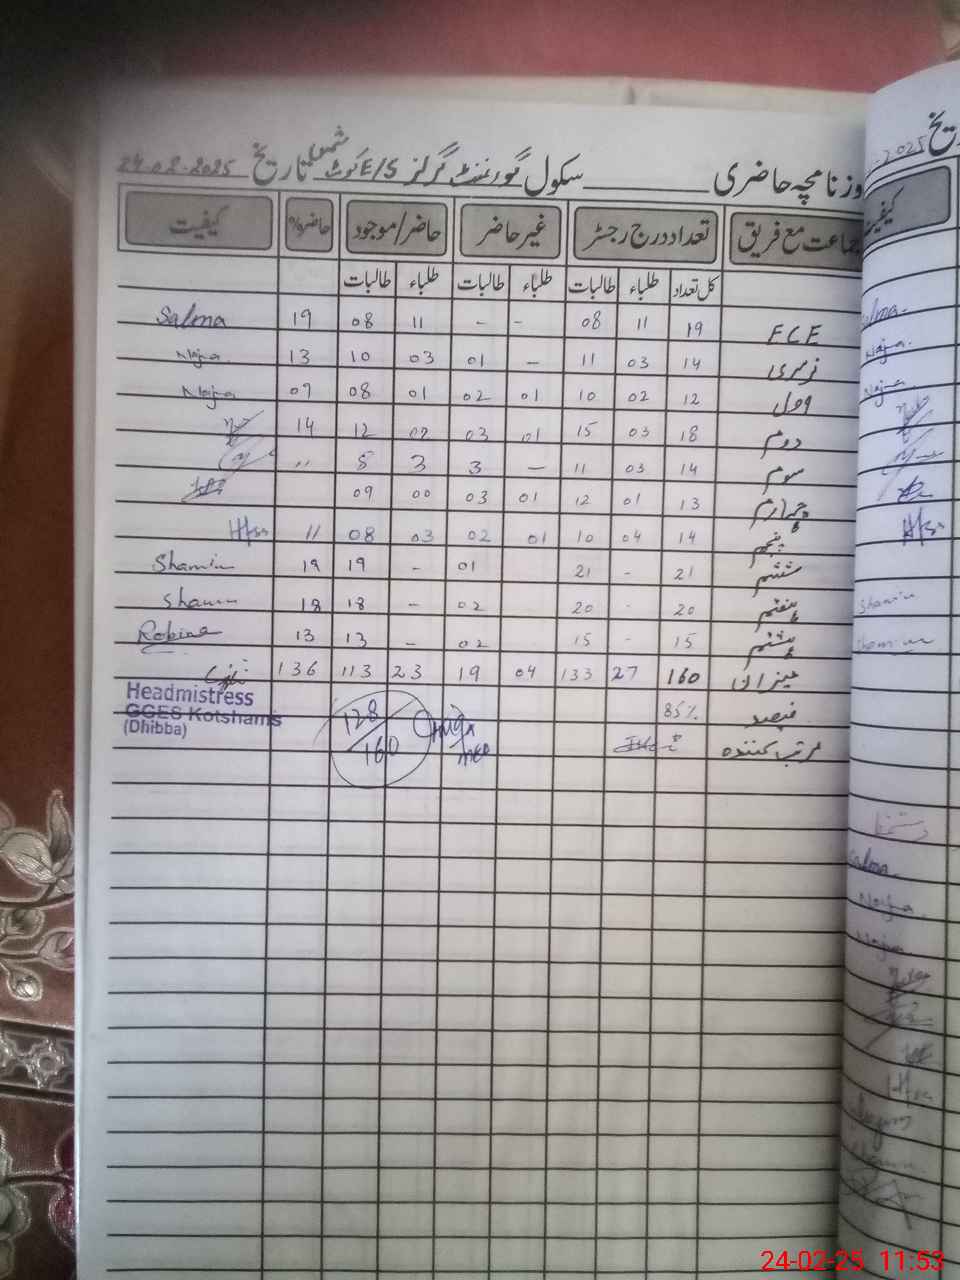 روزنامچہ حاضری ________ سکول گورنمنٹ گرلز E/S کوٹ شمس تاریخ 24-02-2025
جماعت مع فریق تعداد درج رجسٹر غیر حاضر حاضر/موجود حاضر% کیفیت
کل تعداد طلباء طالبات طلباء طالبات طلباء طالبات
ECE 19 11 08 - - 11 08 19 Salma
نرسری 14 03 11 - 01 03 10 13 Najma
اول 12 02 10 01 02 01 08 09 Najma
دوم 18 03 15 01 03 02 12 14
سوم 14 03 11 - 3 3 8 11
چہارم 13 01 12 01 03 00 09
پنجم 14 04 10 01 02 03 08 11 Hfsa
ششم 21 - 21 01 - 19 19 Shamim
ہفتم 20 - 20 02 - 18 18 Shamim
ہشتم 15 - 15 02 - 13 13 Robina
میزان 160 27 133 04 19 23 113 136
فیصد 85%
مرتب کنندہ
Headmistress
GGES Kotshams
(Dhibba)
128/160
2025
تاریخ
کیفیت
Salma
Najma
Najma
Hfsa
Shamim
Shamim
Salma
Najma
Najma
Hfsa
24-02-25 11:53